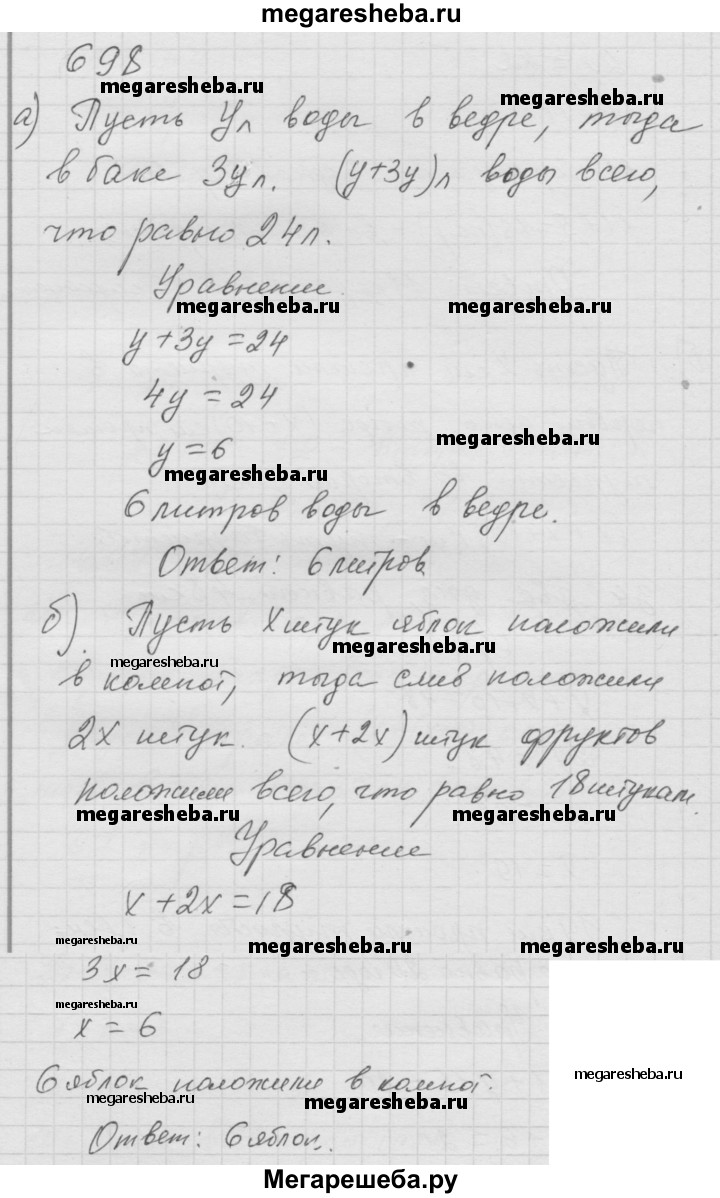 megaresheba.ru
698
megaresheba.ru
megaresheba.ru
а) Пусть Ул воды в ведре, тогда
в баке 3у л. (у+3у)л воды всего,
что равно 24л.
Уравнение
megaresheba.ru
megaresheba.ru
у+3у=24
4у = 24
megaresheba.ru
у=6
megaresheba.ru
6 литров воды в ведре.
Ответ: 6 литров
б) Пусть Х штук яблок положили
megaresheba.ru
megaresheba.ru
в компот, тогда слив положили
2х штук. (х+2х) штук фруктов
положили всего, что равно 18 штукам.
megaresheba.ru
megaresheba.ru
Уравнение
х+2х=18
megaresheba.ru
megaresheba.ru
megaresheba.ru
3х= 18
megaresheba.ru
х = 6
megaresheba.ru
6 яблок положили в компот.
megaresheba.ru
megaresheba.ru
Ответ: 6 яблок.
Мегарешеба.ру